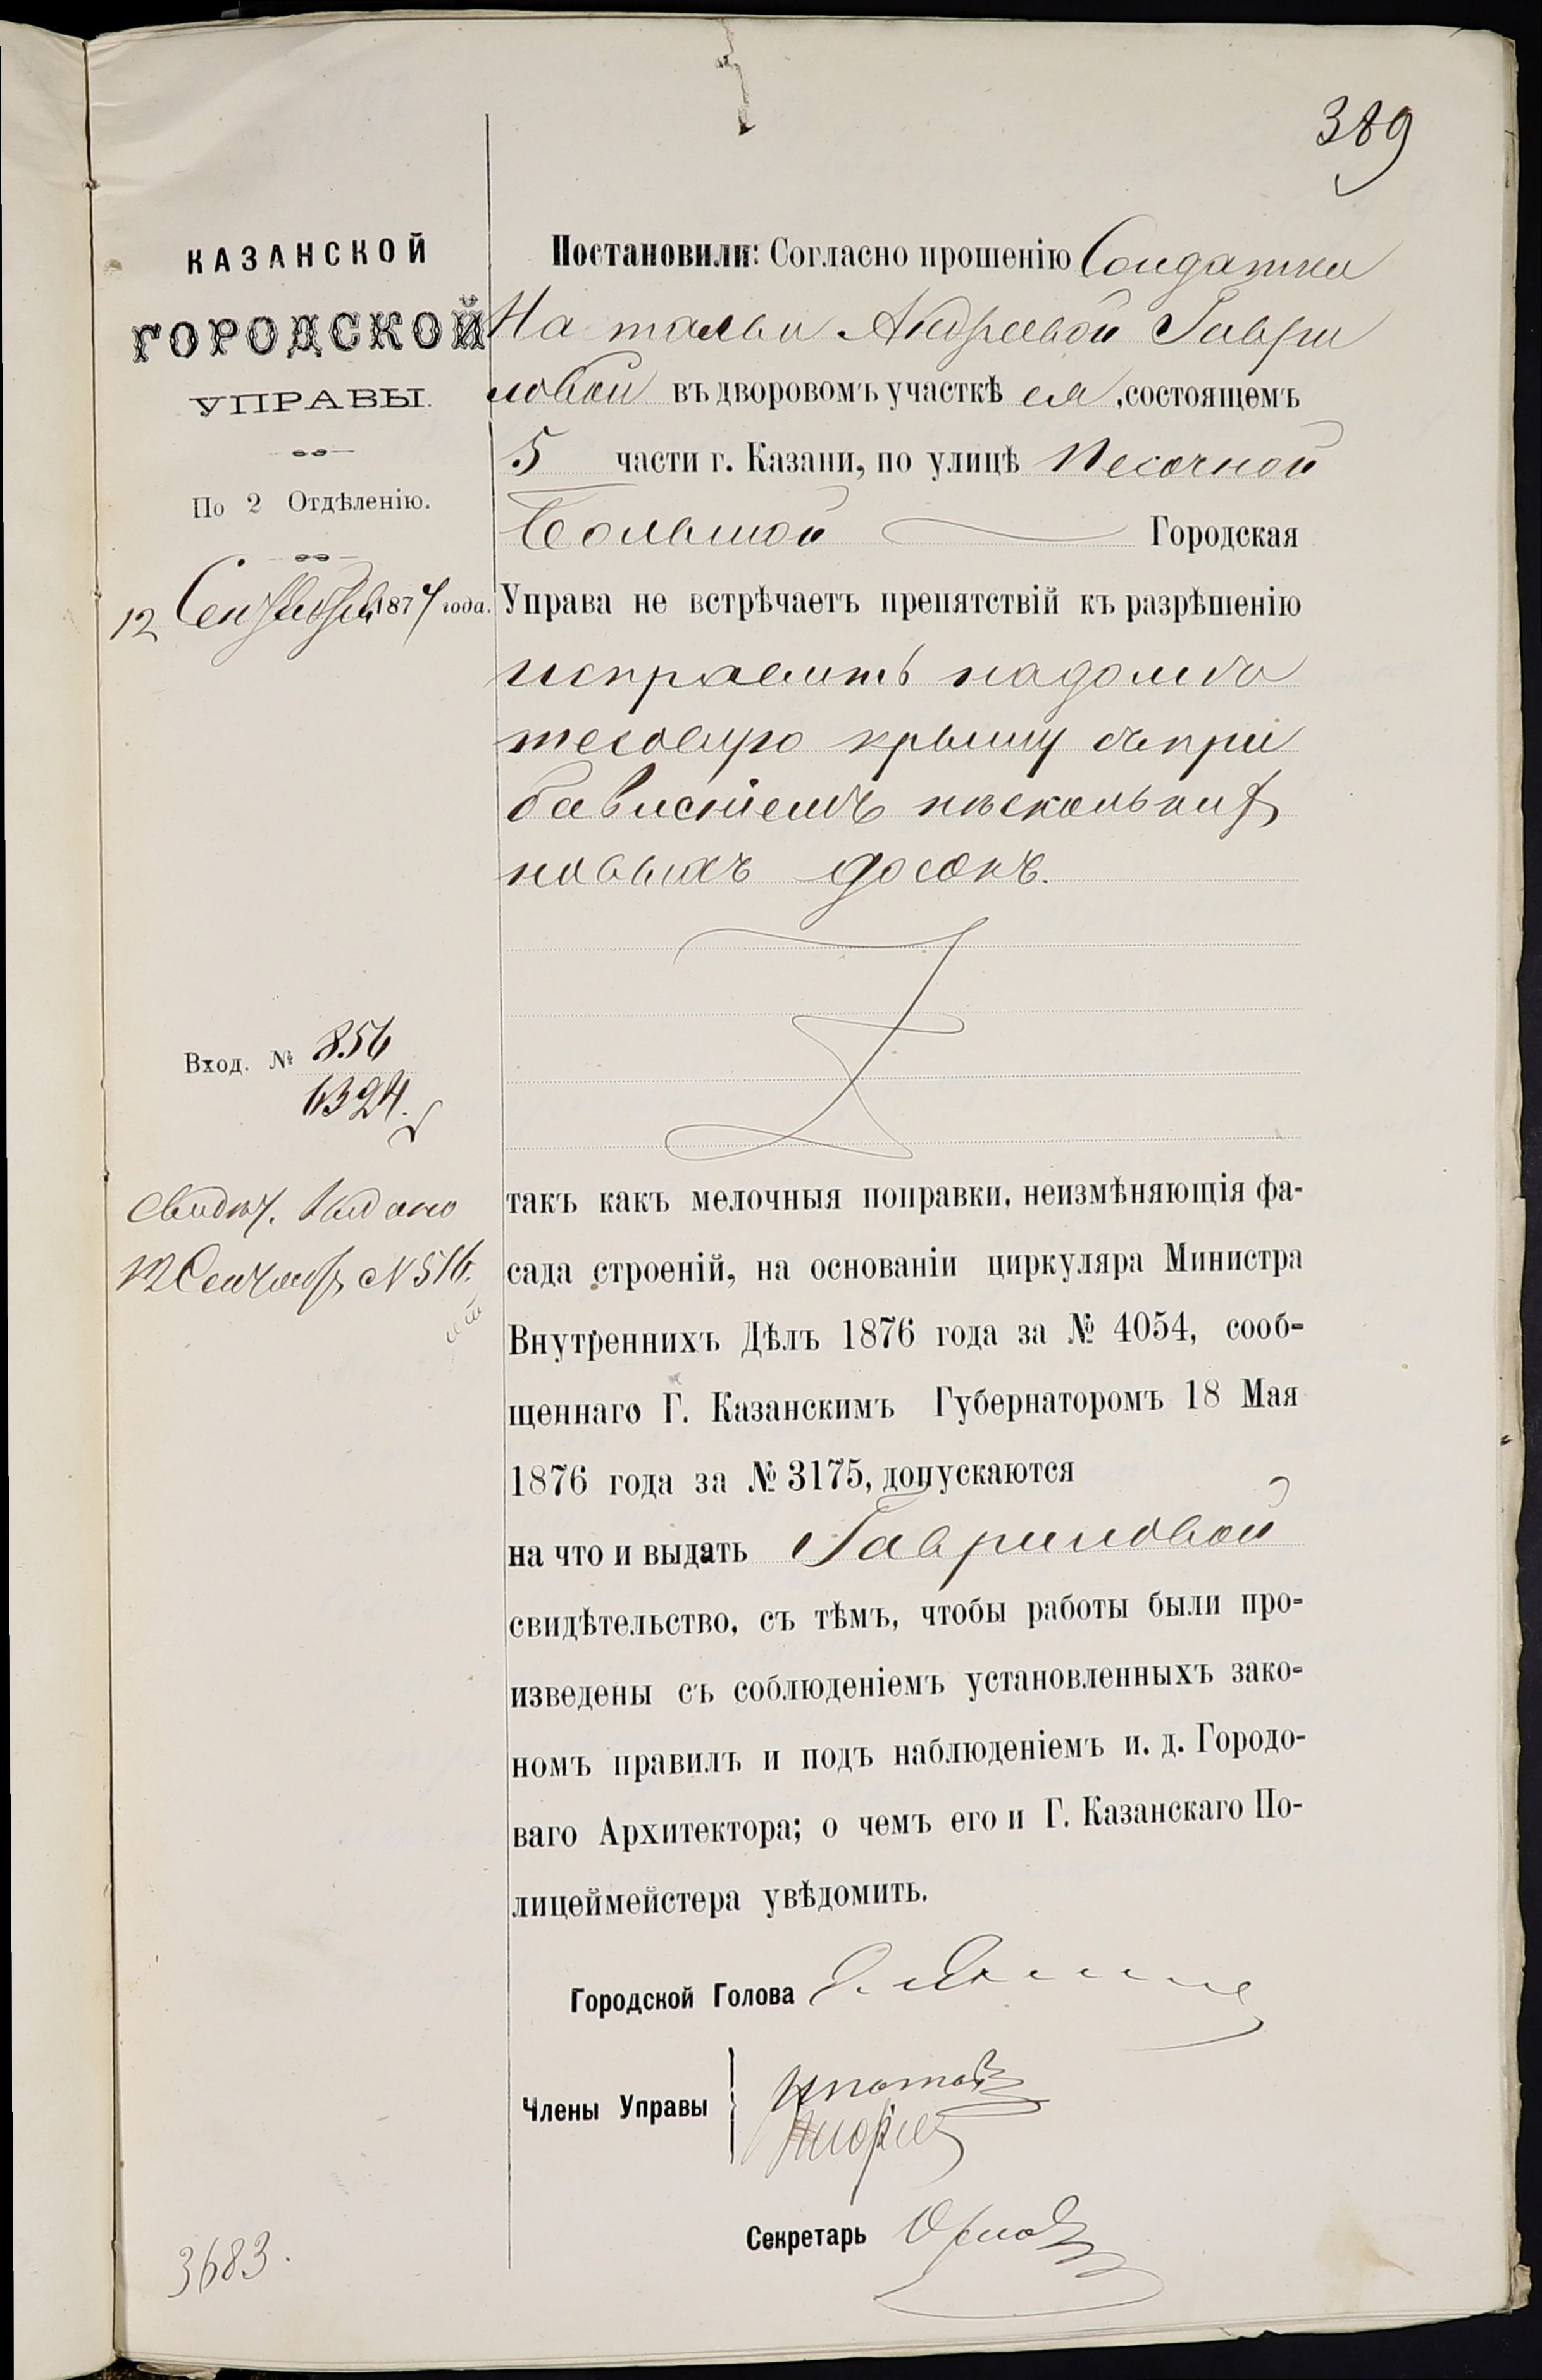 389
КАЗАНСКОЙ
ГОРОДСКОЙ
УПРАВЫ.
По 2 Отдѣленію.
12 Сентября 1877 года.
Вход. № 856
6324.
Свидѣт. выдано
12 Сентября № 516.
3683.
Постановили: Согласно прошенію Солдатки
Натальи Андреевой Гаври
ловой въ дворовомъ участкѣ ея, состоящемъ
5 части г. Казани, по улицѣ Песочной
Большой Городская
Управа не встрѣчаетъ препятствій къ разрѣшенію
исправить на домѣ
тесовую крышу съ при
бавленіемъ нѣсколькихъ
новыхъ досокъ.
такъ какъ мелочныя поправки, неизмѣняющія фа-
сада строеній, на основаніи циркуляра Министра
Внутреннихъ Дѣлъ 1876 года за № 4054, сооб-
щеннаго Г. Казанскимъ Губернаторомъ 18 Мая
1876 года за № 3175, допускаются
на что и выдать Гавриловой
свидѣтельство, съ тѣмъ, чтобы работы были про-
изведены съ соблюденіемъ установленныхъ зако-
номъ правилъ и подъ наблюденіемъ и. д. Городо-
ваго Архитектора; о чемъ его и Г. Казанскаго По-
лицеймейстера увѣдомить.
Городской Голова
Члены Управы
Секретарь